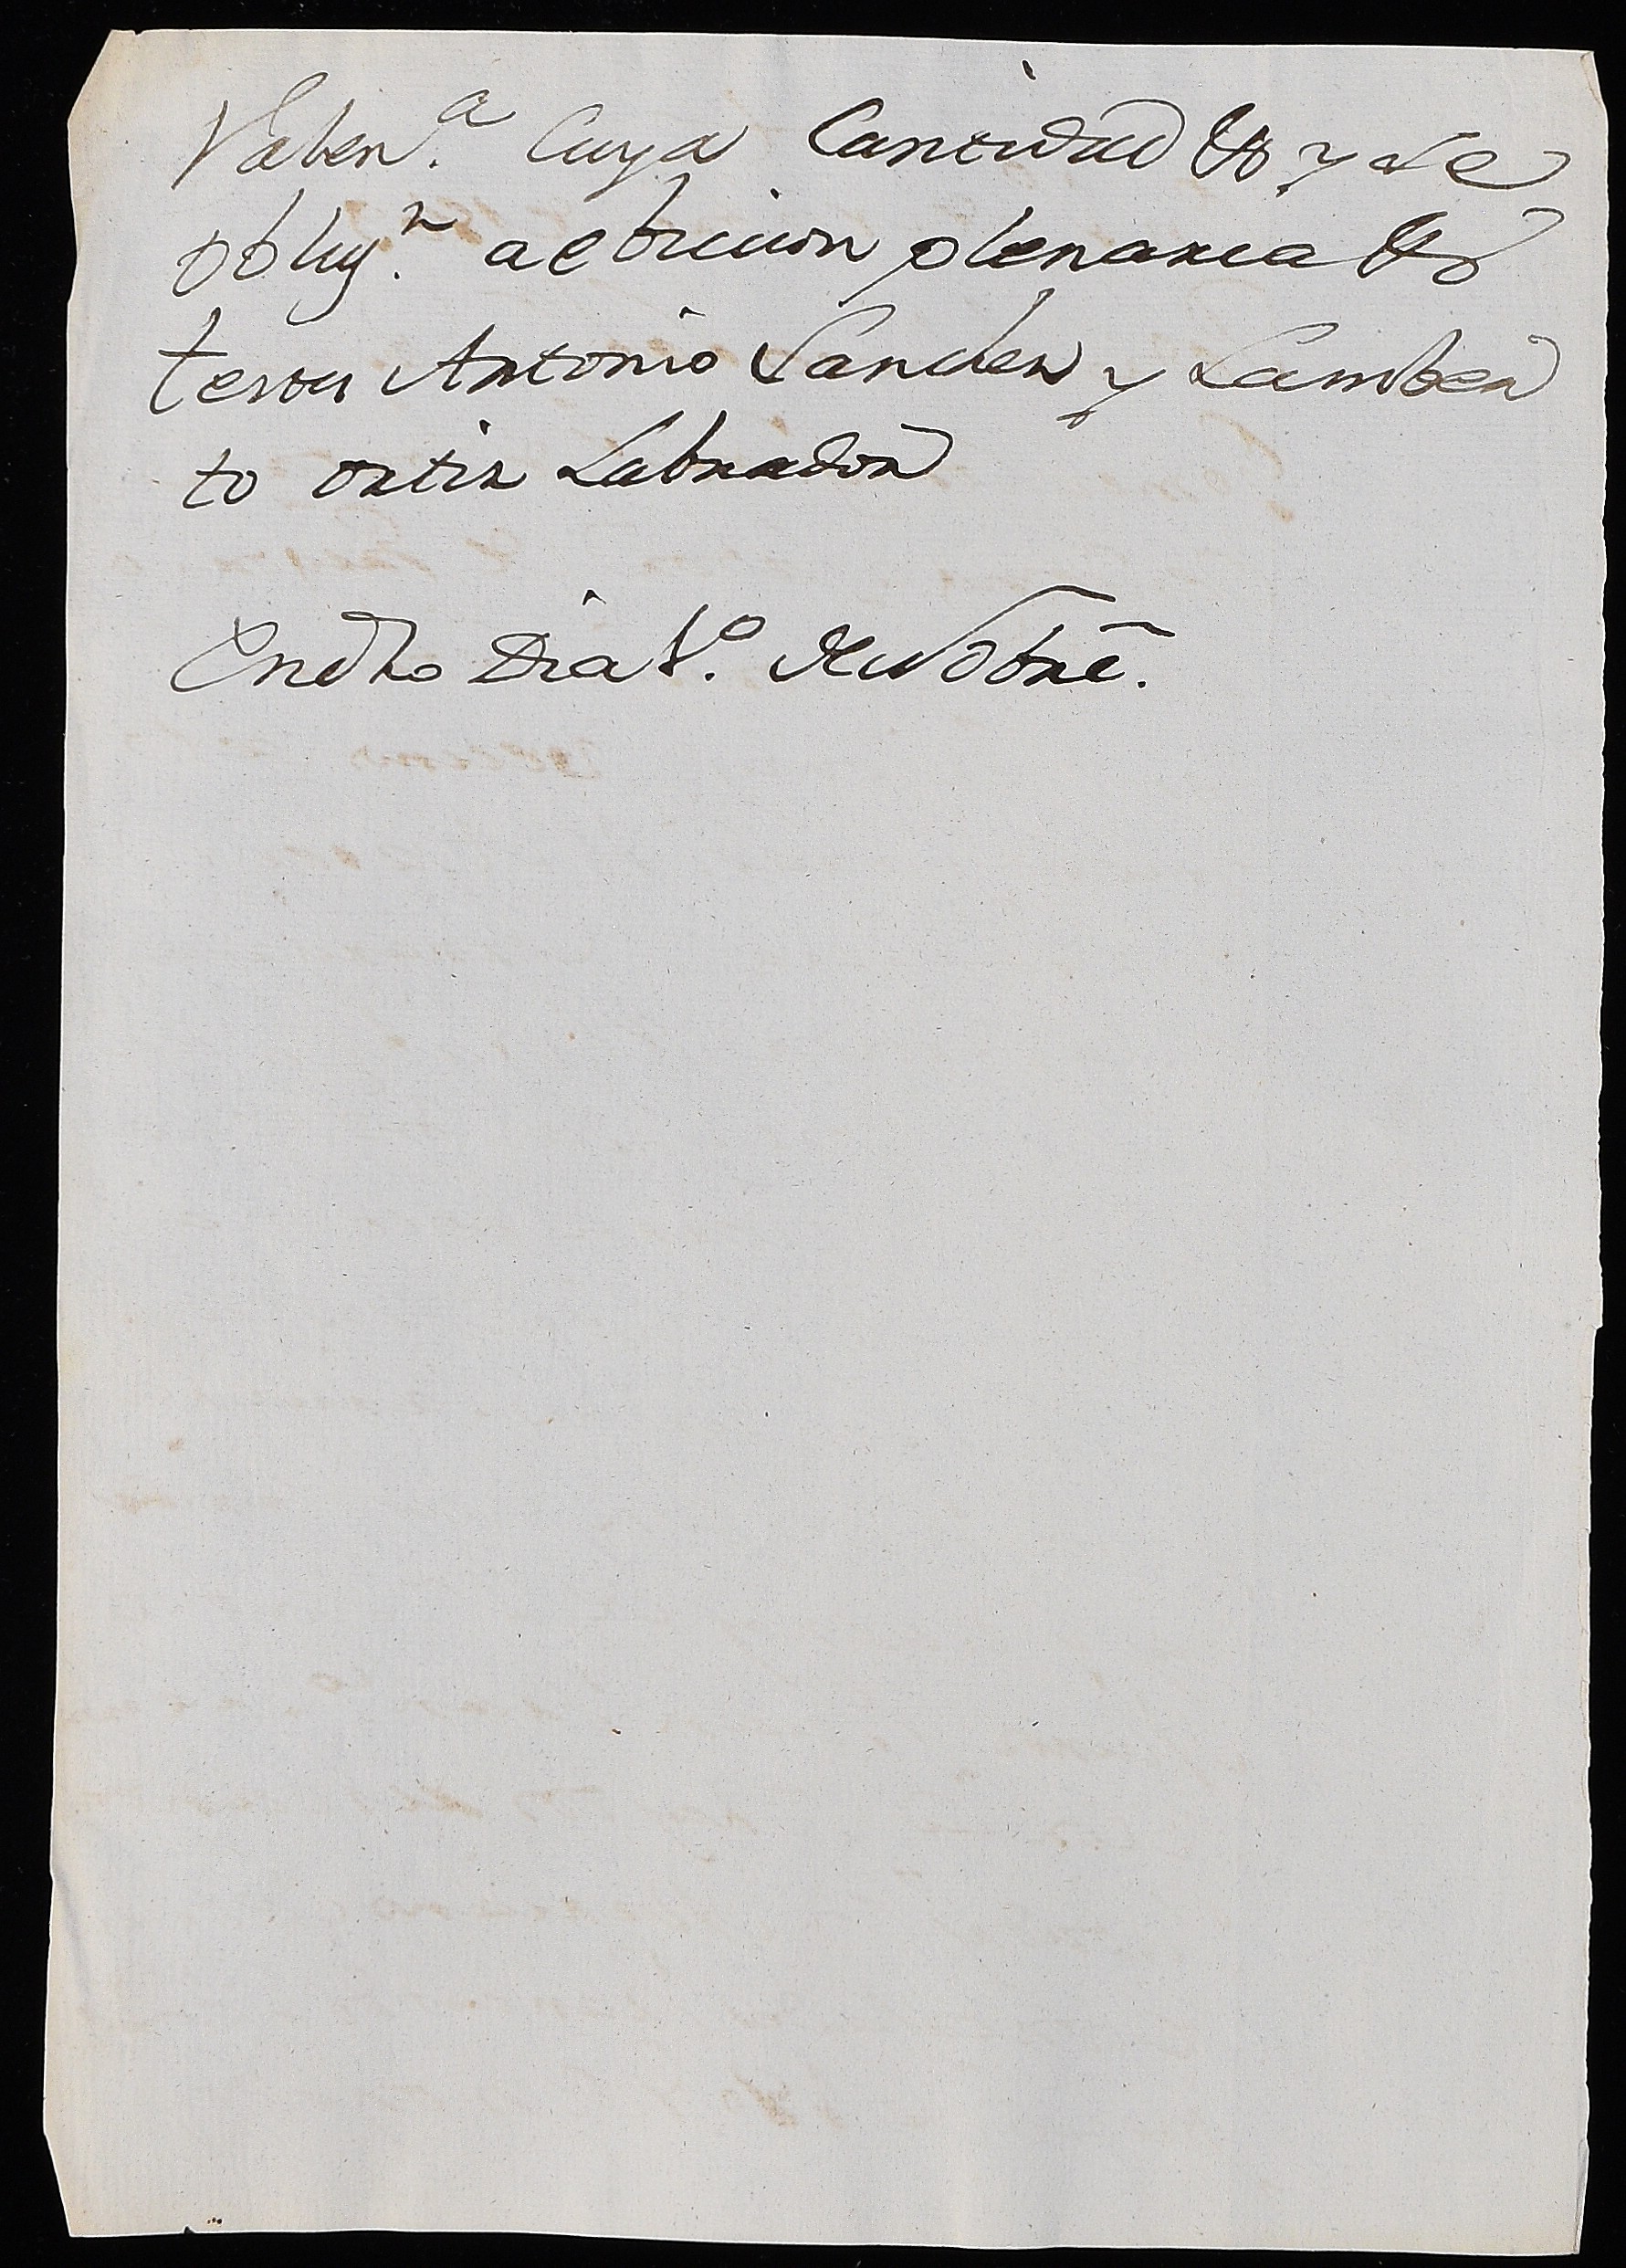 Valen.ª Cuya Cantidad &ª y se
oblig.n a eviccion plenaria &ª
testes Antonio Sanches y Lamber
to ortiz Labrador
En dho Dia V.º de Nobre.